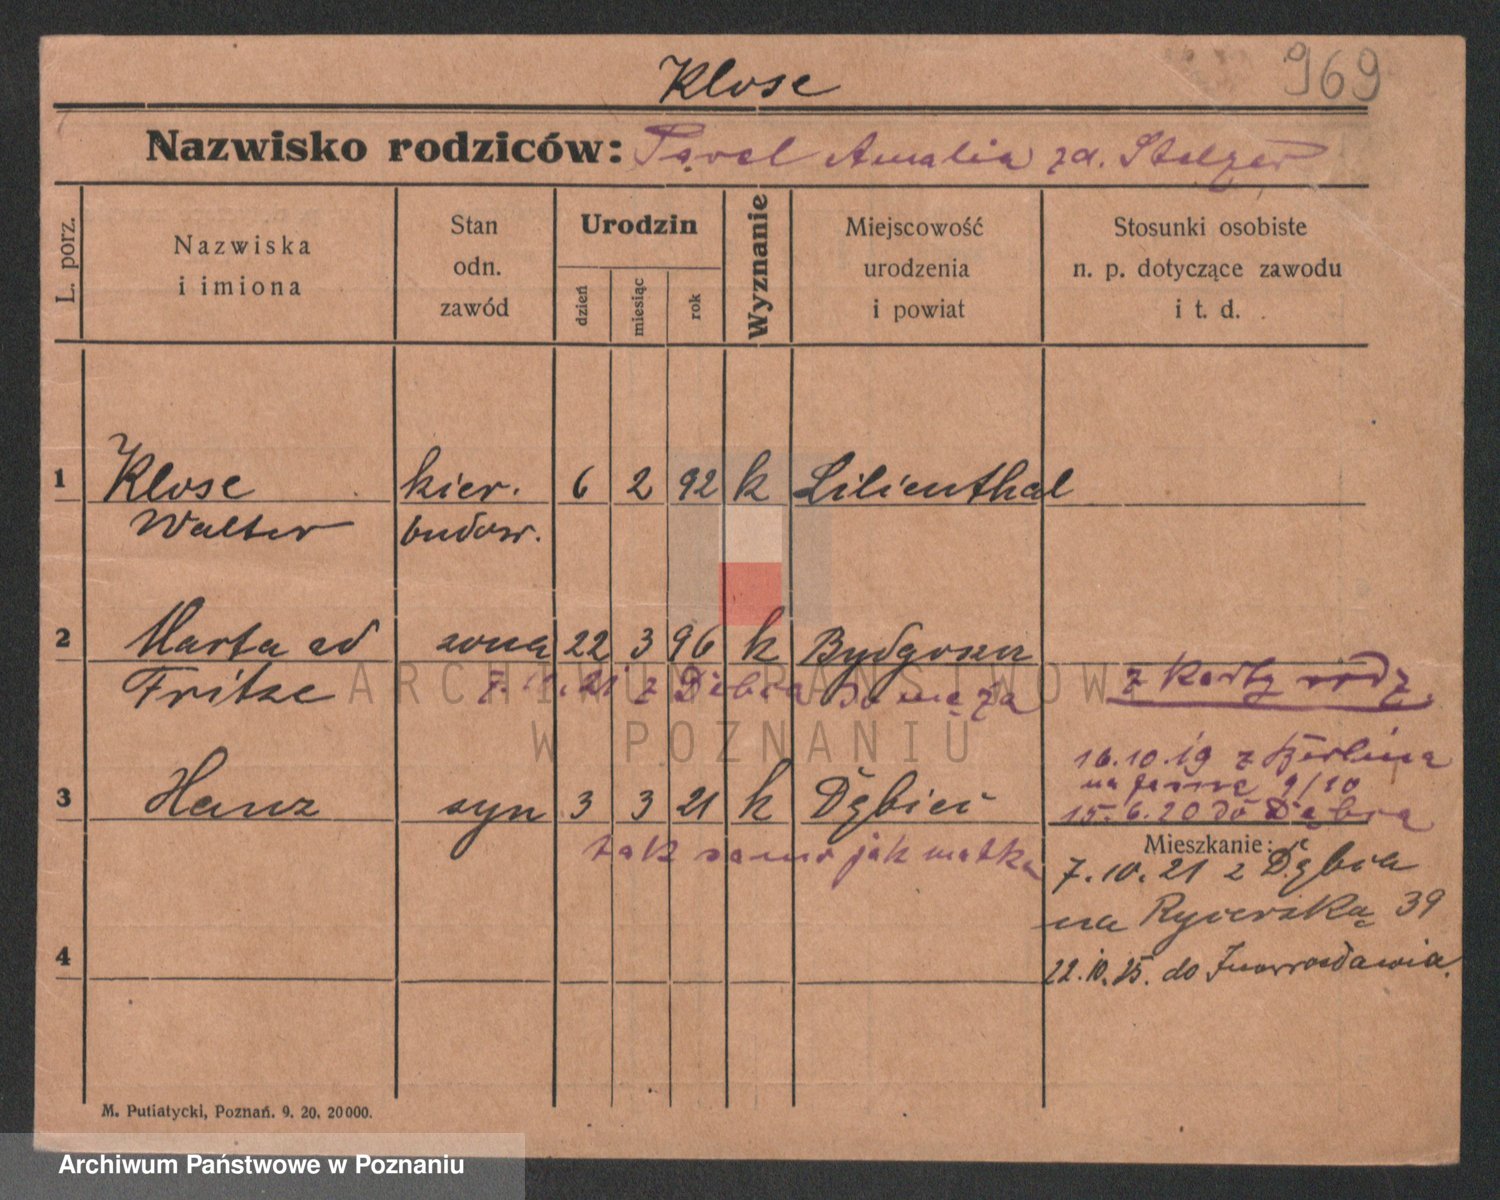 969
Klose
Nazwisko rodziców: Pavel Amalia zd. Stelzer
L. porz.
Nazwiska i imiona
Stan odn. zawód
Urodzin
dzień
miesiąc
rok
Wyznanie
Miejscowość urodzenia i powiat
Stosunki osobiste n. p. dotyczące zawodu i t. d.
1 Klose kier. 6 2 92 k Lilienthal
Walter budow.
2 Marta zd żona 22 3 96 k Bydgoszcz
Fritze 7.11.21 z Dębca do męża
z karty rodz.
16.10.19 z Berlina
na 9/10
3 Hanz syn 3 3 21 k Dębiec 15.6.20 do Dębca
tak samo jak matka
Mieszkanie:
7.10.21 z Dębca
na Rycerską 39
4
22.10.25. do Inowrocławia.
M. Putiatycki, Poznań. 9. 20. 20000.
ARCHIWUM PAŃSTWOWE
W POZNANIU
Archiwum Państwowe w Poznaniu